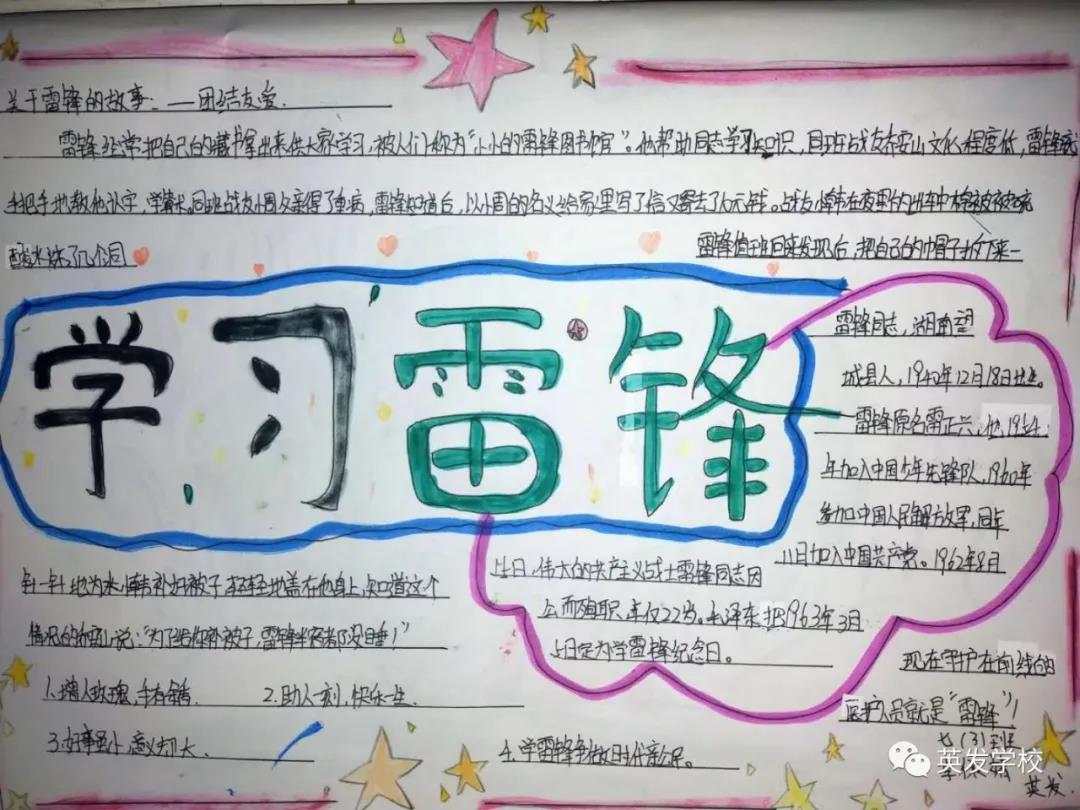 关于雷锋的故事：——团结友爱.
雷锋经常把自己的藏书拿出来供大家学习，被人们称为“小小的雷锋图书馆”。他帮助同志学习知识，同班战友乔安山文化程度低，雷锋就
手把手地教他认字，学算术。同班战友小周父亲得了重病，雷锋知道后，以小周的名义给家里写了信又寄去了10元钱。战友小韩在夜里出车中棉裤被
酸水烧了几个洞
雷锋值班回来发现后，把自己的帽子拆下来一
学习雷锋
雷锋同志，湖南望
城县人，1940年12月18日出生。
雷锋原名雷正兴，他1954
年加入中国少年先锋队，1960年
参加中国人民解放军，同年
11月加入中国共产党。1962年8月
15日，伟大的共产主义战士雷锋同志因
公而殉职，年仅22岁。毛泽东把1963年3月
5日定为学雷锋纪念日。
针一针地为小韩补好被子，轻轻地盖在他身上，知道这个
情况的乔安山说：“为了给你补被子，雷锋半夜都没睡！”
1.赠人玫瑰，手有余香
2.助人一刻，快乐一生.
3.好事虽小，意义却大.
4.学雷锋争做时代新
现在守护在前线的
医护人员就是“雷锋”！
七（3）班
英发
英发学校